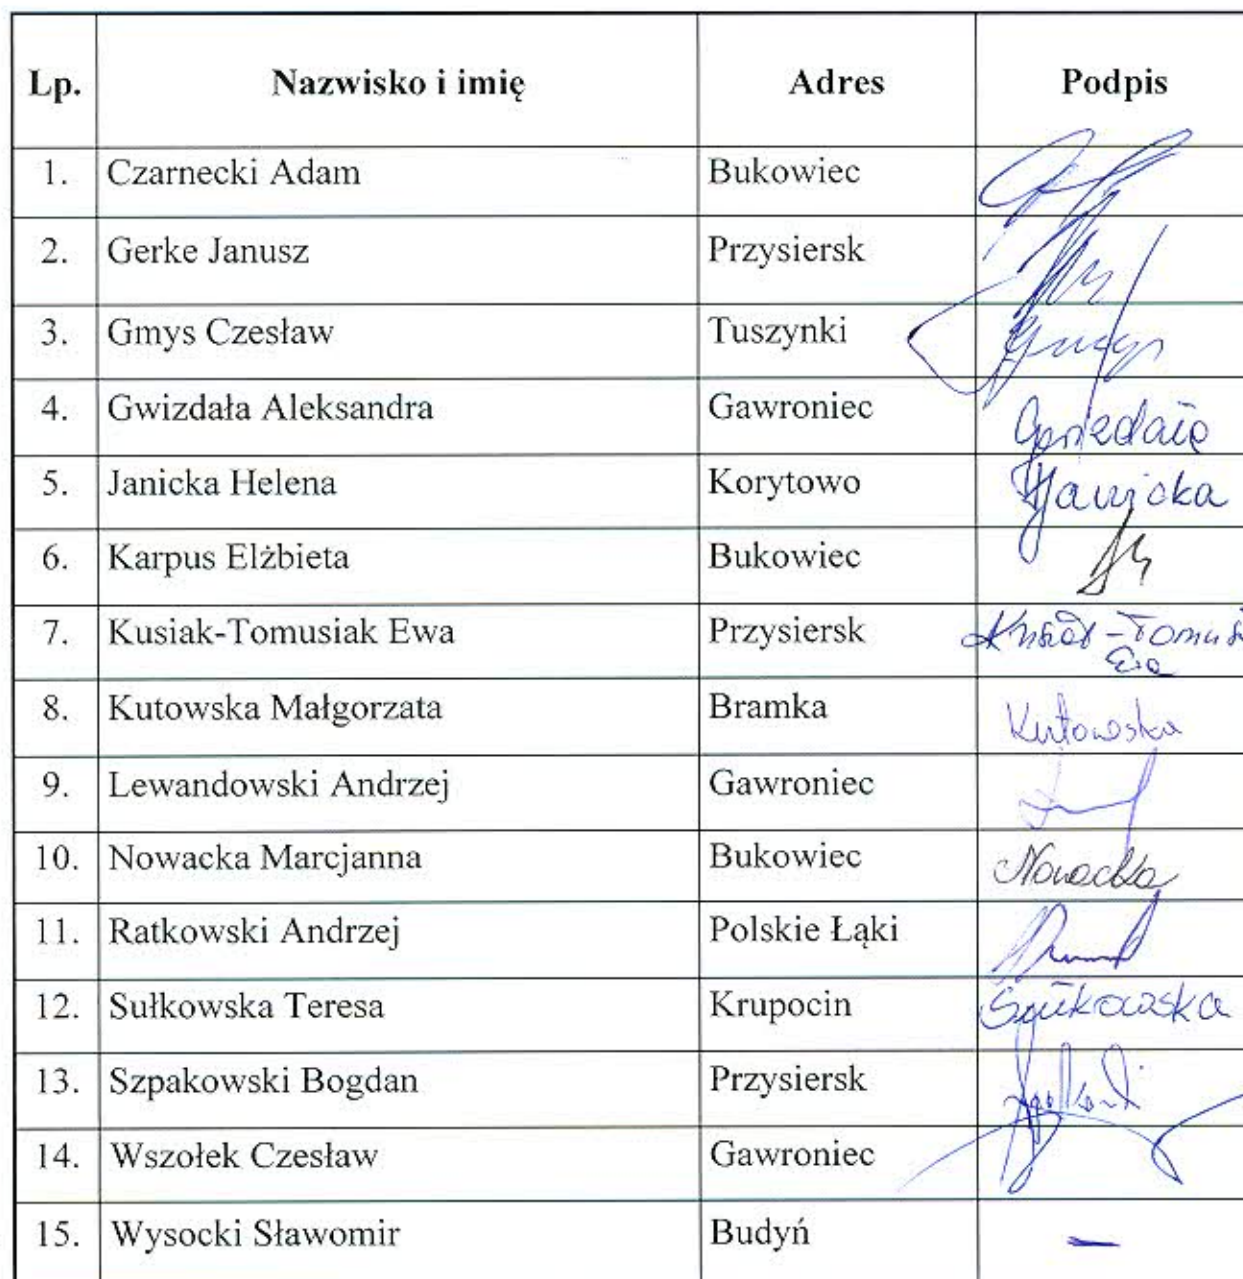 Lp. Nazwisko i imię Adres Podpis
1. Czarnecki Adam Bukowiec
2. Gerke Janusz Przysiersk
3. Gmys Czesław Tuszynki Gmys
4. Gwizdała Aleksandra Gawroniec
5. Janicka Helena Korytowo HJanicka
6. Karpus Elżbieta Bukowiec
7. Kusiak-Tomusiak Ewa Przysiersk
Ewa
8. Kutowska Małgorzata Bramka Kutowska
9. Lewandowski Andrzej Gawroniec
10. Nowacka Marcjanna Bukowiec Nowacka
11. Ratkowski Andrzej Polskie Łąki
12. Sułkowska Teresa Krupocin Sułkowska
13. Szpakowski Bogdan Przysiersk
14. Wszołek Czesław Gawroniec
15. Wysocki Sławomir Budyń —